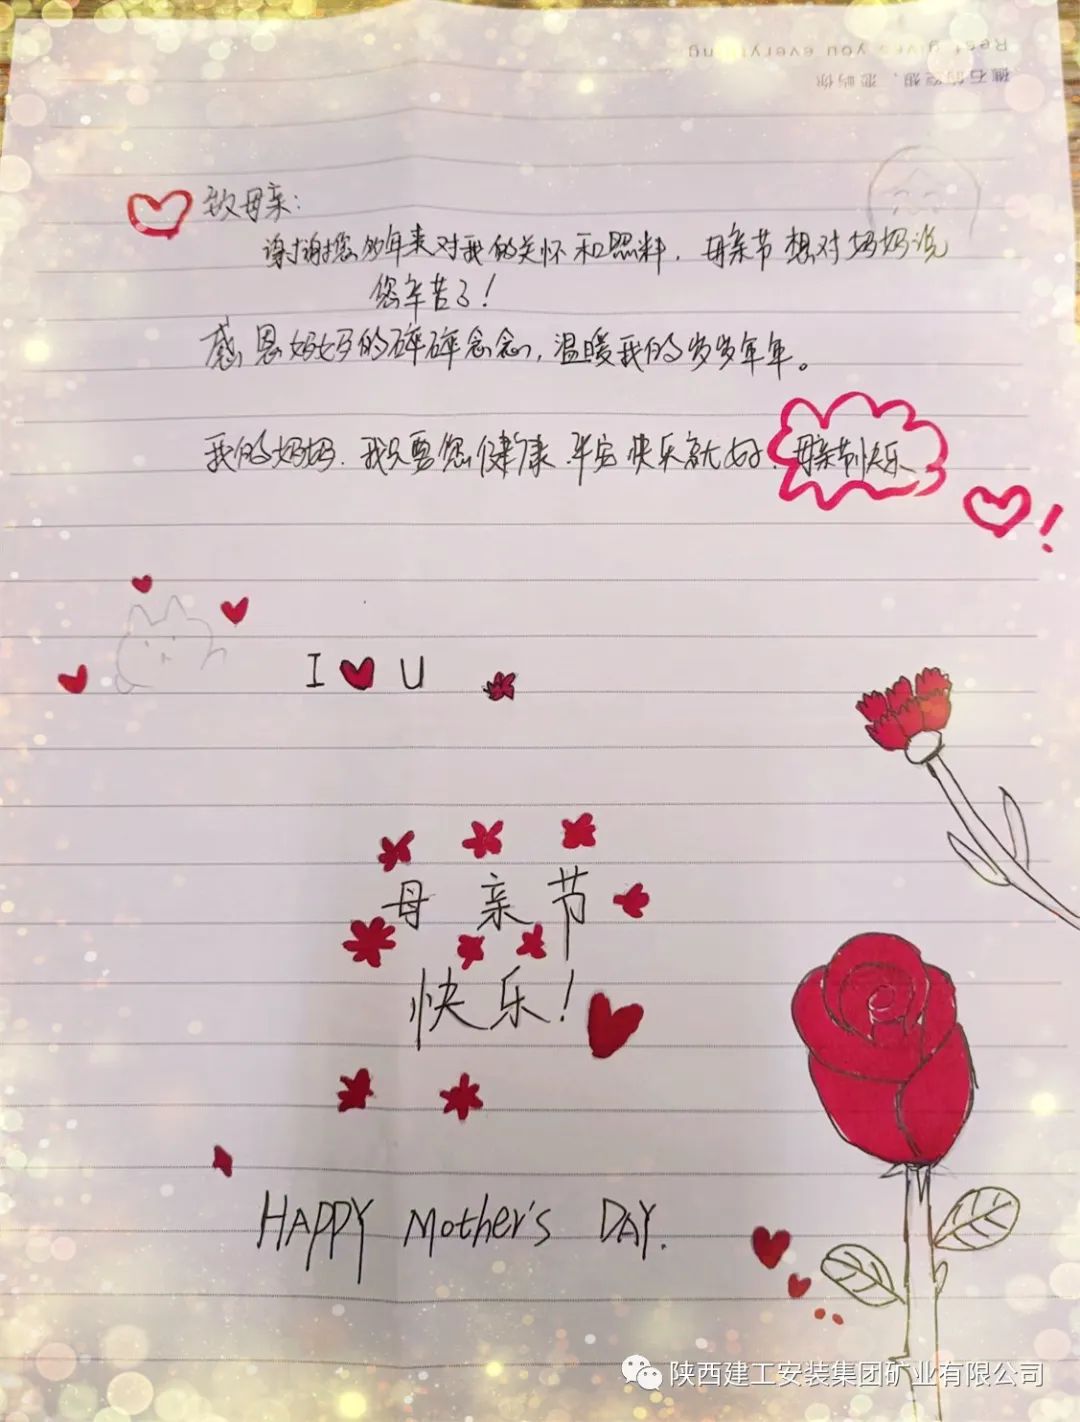 Rest gives you everything
致母亲:
谢谢您多年来对我的关怀和照料,母亲节想对妈妈说
您辛苦了!
感恩妈妈的碎碎念念,温暖我的岁岁年年。
我的妈妈,我只要您健康.平安快乐就好.母亲节快乐
!
I U
母亲节
快乐!
HAPPY Mother's DAY.
陕西建工安装集团矿业有限公司